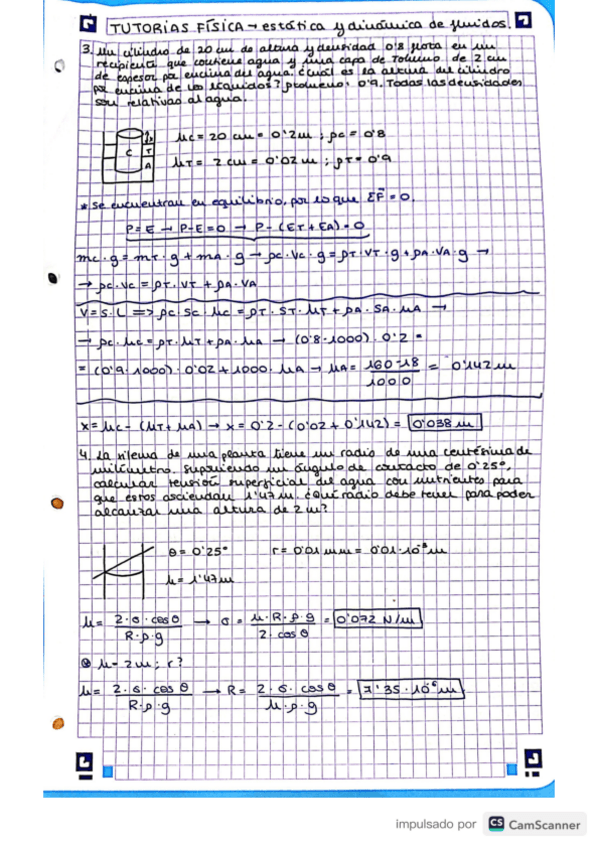 TUTORIAS FÍSICA → estática y dinámica de fluidos.
3. Un cilindro de 20 cm de altura y densidad 0'8 flota en un
recipiente que contiene agua y una capa de Tolueno de 2 cm
de espesor por encima del agua. ¿Cuál es la altura del cilindro
por encima de los líquidos? ρtolueno: 0'9. Todas las densidades
son relativas al agua.
hc = 20 cm = 0'2 m ; ρc = 0'8
C T
A
hT = 2 cm = 0'02 m ; ρT = 0'9
* Se encuentran en equilibrio, por lo que ΣF⃗ = 0.
P = E → P - E = 0 → P - (ET + EA) = 0
mc · g = mT · g + mA · g → ρc · Vc · g = ρT · VT · g + ρA · VA · g →
→ ρc · Vc = ρT · VT + ρA · VA
V = S · L => ρc · Sc · hc = ρT · ST · hT + ρA · SA · hA →
→ ρc · hc = ρT · hT + ρA · hA → (0'8 · 1000) · 0'2 =
= (0'9 · 1000) · 0'02 + 1000 · hA → hA = 160 - 18 / 1000 = 0'142 m
x = hc - (hT + hA) → x = 0'2 - (0'02 + 0'142) = 0'038 m
4. La xilema de una planta tiene un radio de una centésima de
milímetro. Suponiendo un ángulo de contacto de 0'25°,
calcular tensión superficial del agua con nutrientes para
que estos asciendan 1'47 m. ¿Qué radio debe tener para poder
alcanzar una altura de 2 m?
θ = 0'25° r = 0'01 mm = 0'01 · 10⁻³ m
h = 1'47 m
h = 2 · σ · cos θ / R · ρ · g → σ = h · R · ρ · g / 2 · cos θ = 0'072 N/m
h = 2 m ; r?
h = 2 · σ · cos θ / R · ρ · g → R = 2 · σ · cos θ / h · ρ · g = 7'35 · 10⁻⁶ m
impulsado por CS CamScanner